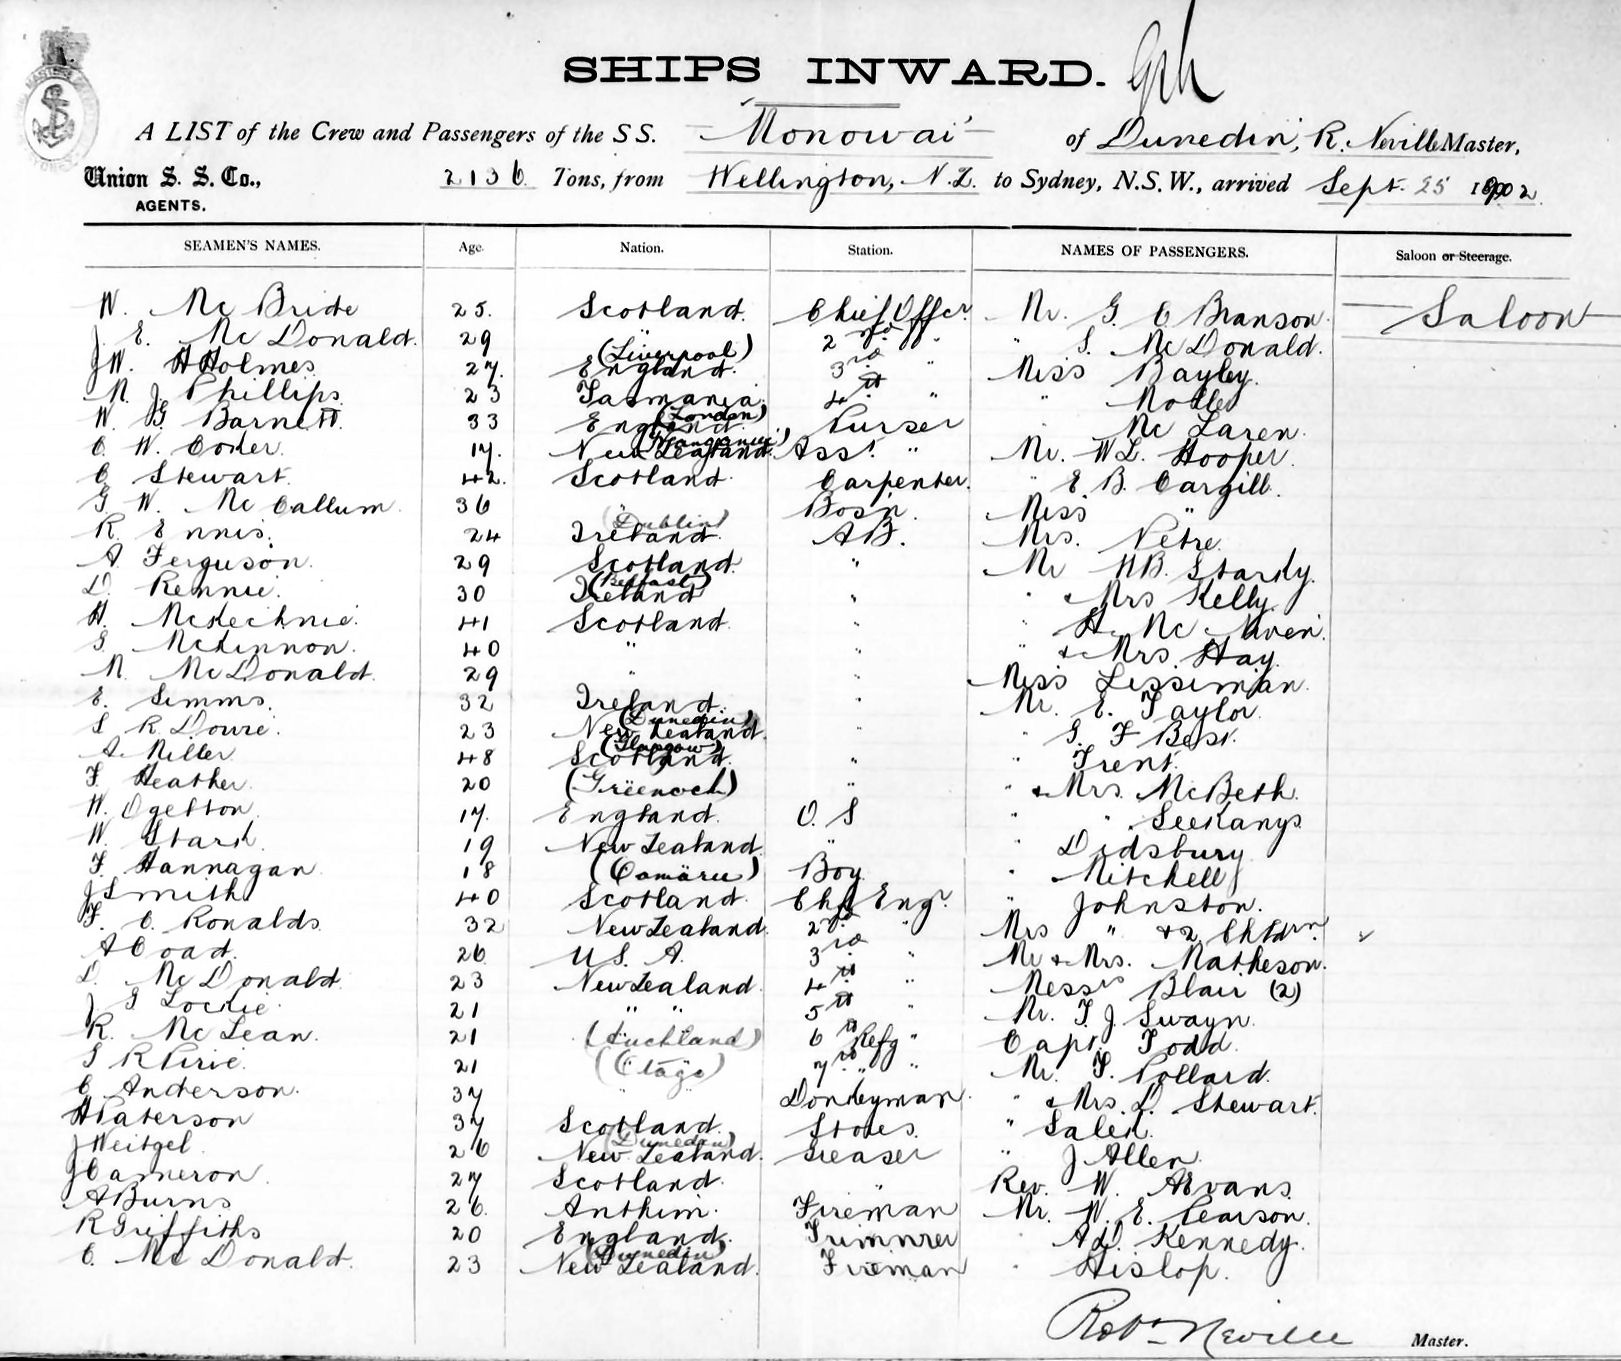 SHIPS INWARD.
A LIST of the Crew and Passengers of the S S. Monowai of Dunedin, R. Neville Master,
Union S. S. Co., 2136 Tons, from Wellington, N.Z. to Sydney, N.S.W., arrived Sept. 25 1902
AGENTS.
SEAMEN'S NAMES. Age. Nation. Station. NAMES OF PASSENGERS. Saloon or Steerage.
W. Mc Bride 25. Scotland. Chief Offcr. Mr. G. C Branson. Saloon
J. E. Mc Donald. 29 " 2nd " " S. McDonald.
J W. H Holmes. 27. (Liverpool) England. 3rd " Miss Bayley.
N. J. Phillips. 23 Tasmania. 4th " "
W. G. Barnett. 33 England. (London) Purser " Mc Laren.
C. W. Coker. 17. New Zealand. Asst. " Mr. W L. Hooper.
C Stewart. 42. Scotland. Carpenter. " E. B. Cargill.
G W. Mc Callum. 36 " Bos'n. Miss "
R. Ennis. 24 (Dublin) Ireland. A B. Mrs.
A. Ferguson. 29 Scotland. " Mr H B. Sturdy.
D. Rennie. 30 (Belfast) Ireland " " & Mrs Kelly.
H. McKechnie. 41 Scotland. " "
S. McKinnon. 40 " " " & Mrs. Hay.
N. McDonald. 29 " " Miss Lissiman.
E. Simms. 32 Ireland. " Mr. E. Taylor.
S R. Dowie. 23 (Dunedin) New Zealand. " " G. F Best.
A. Miller 48 (Glasgow) Scotland. " " Trent.
F. Heather. 20 (Greenock) " " & Mrs. McBeth.
W. Ogelton. 17. England. O. S " "
W. Stark. 19 New Zealand. " " Didsbury
F. Hannagan. 18 (Oamaru) Boy. " Mitchell
J Smith 40 Scotland. Chf Engr. " Johnston.
F. C. Ronalds. 32 New Zealand. 2nd " Mrs " & 2 Chldrn.
A Coad. 26 U S. A. 3rd " Mr & Mrs. Matheson.
D. McDonald. 23 New Zealand. 4th " Messrs Blair (2)
J G Lockie. 21 " " 5th " Mr. F. J. Swayn.
R. Mc Lean. 21 (Auckland) 6th Refg " Capt. Todd.
S R Pirie. 21 (Otago) 7th " " Mr. F. Pollard.
C Anderson. 37 " " Donkeyman. " & Mrs. D. Stewart.
H Paterson 37 Scotland. Stores. " Salek.
J Weitgel. 26 (Dunedin) New Zealand. Greaser " J Allen.
J Cameron. 27 Scotland. " Rev. W. A Evans.
A Burns 26. Fireman Mr. W. E. Pearson.
R Griffiths 20 England. Trimmer " A D. Kennedy.
C. Mc Donald. 23 (Dunedin) New Zealand. Fireman " Hislop.
Robt. Neville Master.